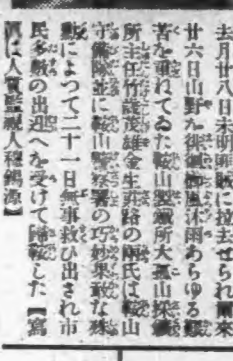 去月廿八日未明匪賊に拉去せられ爾來
廿六日山野を徘徊櫛風沐雨あらゆる艱
苦を重ねてゐた鞍山製鐵所大孤山採鑛
所主任竹蔵茂雄金生 路の兩氏は鞍山
守備隊並に鞍山警察署の巧妙果敢な殊
勳によつて二十一日無事救ひ出され市
民多數の出迎へを受けて歸鞍した【寫
眞は人質監視人穆錫源】